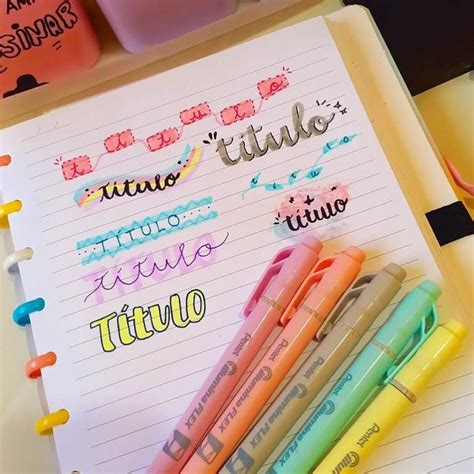 AMI
SINAR
título
título
título
título
título
TÍTULO
título
TÍTULO
Pentel illumina FLEX
Pentel illumina FLEX
Pentel illumina FLEX
Pentel illumina FLEX
Pentel illumina FLEX